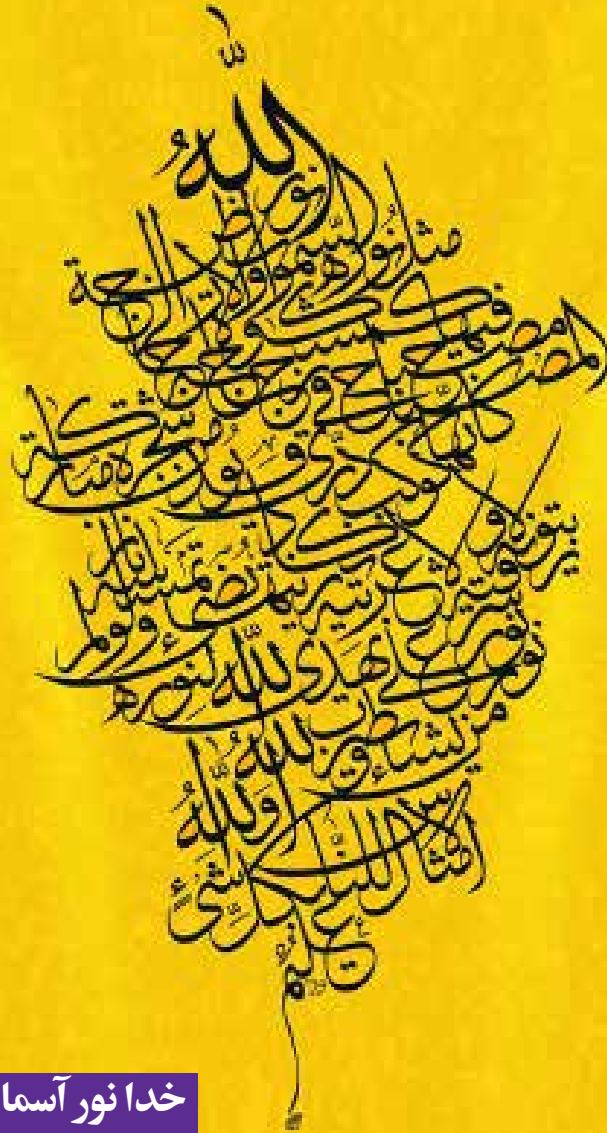 الله نور السموات والارض
مثل نوره كمشكوة
فيها مصباح المصباح
في زجاجة الزجاجة
كانها كوكب دري يوقد من شجرة مباركة
زيتونة لا شرقية ولا غربية يكاد زيتها يضئ ولو لم تمسسه نار
نور على نور يهدي الله لنوره
من يشاء ويضرب الله
الامثال للناس والله
بكل شئ
عليم
خدا نور آسما